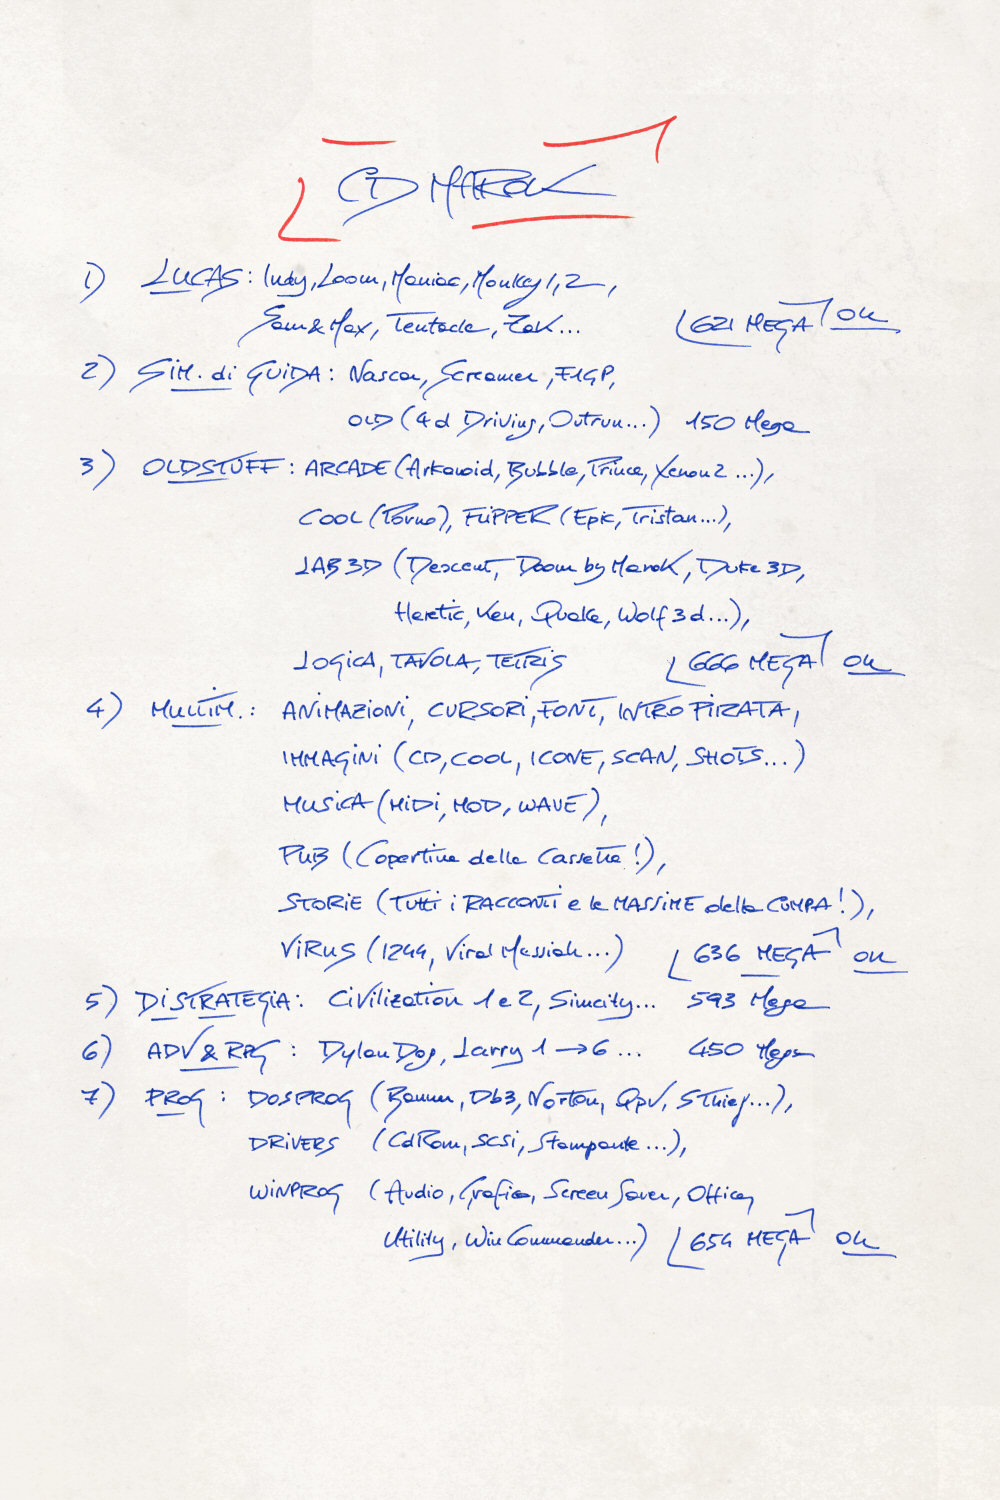 CD MAROK
1) LUCAS: Indy, Loom, Maniac, Monkey 1, 2,
Sam & Max, Tentacle, Zak... 621 MEGA OK
2) SIM. di GUIDA: Nascar, Screamer, F1GP,
OLD (4d Driving, Outrun...) 150 Mega
3) OLDSTUFF: ARCADE (Arkanoid, Bubble, Prince, Xenon 2 ...),
COOL (Porno), FLIPPER (Epic, Tristan...),
LAB 3D (Descent, Doom by Marok, Duke 3D,
Heretic, Ken, Quake, Wolf 3d...),
LOGICA, TAVOLA, TETRIS 666 MEGA OK
4) MULTIM.: ANIMAZIONI, CURSORI, FONT, INTRO PIRATA,
IMMAGINI (CD, COOL, ICONE, SCAN, SHOTS...)
MUSICA (MIDI, MOD, WAVE),
PUB (Copertine delle Cassette!),
STORIE (TUTTI i RACCONTI e le MASSIME della CUMPA!),
VIRUS (1244, Viral Messiah...) 636 MEGA OK
5) DI STRATEGIA: Civilization 1 e 2, Simcity... 593 Mega
6) ADV & RPG: Dylan Dog, Larry 1 → 6 ... 450 Mega
7) PROG: DOSPROG (Banner, Db3, Norton, Qpv, SThief...),
DRIVERS (CdRom, SCSI, Stampante...),
WINPROG (Audio, Grafica, Screen Saver, Office,
Utility, Win Commander...) 654 MEGA OK